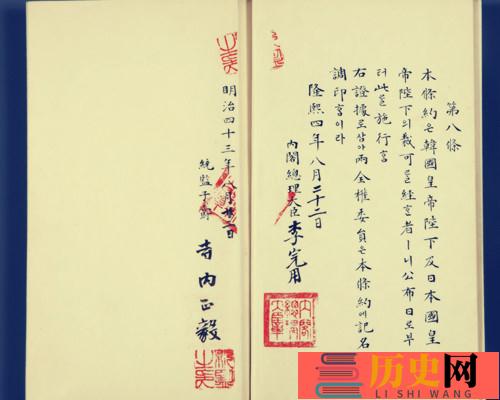 第八條
本條約은韓國皇帝陛下及日本國皇
帝陛下의裁可를經ᄒᆞᆫ者ㅣ니公布日로부
터此를施行ᄒᆞᆷ
右證據로삼아兩全權委員은本條約에記名
調印ᄒᆞᆷ이라
隆熙四年八月二十二日
內閣總理大臣李完用
明治四十三年八月廿二日
統監子爵 寺內正毅
历史网
LI SHI WANG